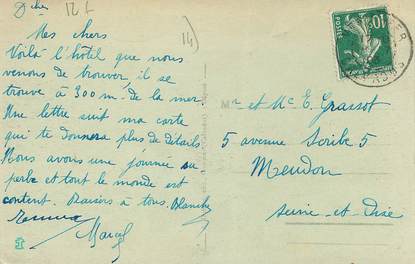 12f
14
Mes chers
Voilà l'hôtel que nous
venons de trouver, il se
trouve à 300 m. de la mer.
Une lettre suit ma carte
qui te donnera plus de détails.
Nous avons une journée su
perbe et tout le monde est
content. Baisers à tous. Blanche
Marcel
POSTES
10
Mr et Me E. Grassot
5 avenue Scribe 5
Meudon
Seine-et-Oise